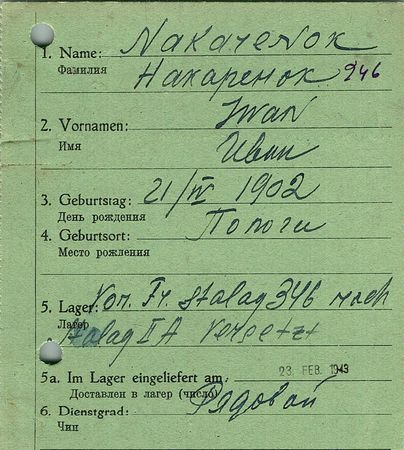 1. Name: Nakarenok
Фамилия Накаренок 946
2. Vornamen: Iwan
Имя Иван
3. Geburtstag: 21/IV 1902
День рождения
4. Geburtsort: Пологи
Место рожления
5. Lager: Von Fr. Stalag 346 nach
Лагерь Stalag II A versetzt
5a. Im Lager eingeliefert am 23. FEB. 1943
Доставлен в лагер (число)
6. Dienstgrad: Рядовой
Чин